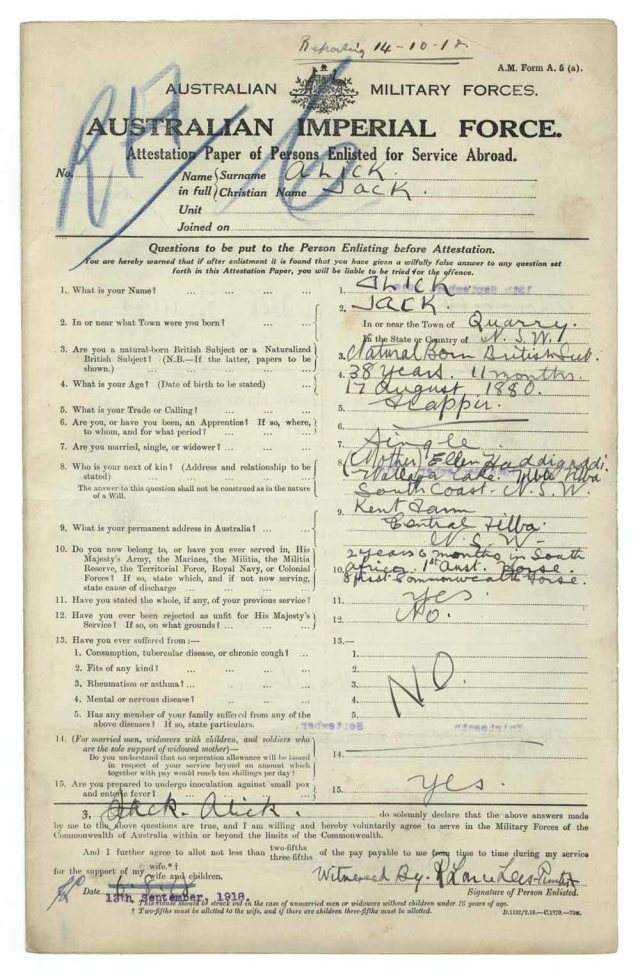 Reporting 14-10-18
A.M. Form A. 5 (a).
AUSTRALIAN MILITARY FORCES.
AUSTRALIAN IMPERIAL FORCE.
Attestation Paper of Persons Enlisted for Service Abroad.
No. Name in full { Surname ALICK.
Christian Name Jack.
Unit
Joined on
Questions to be put to the Person Enlisting before Attestation.
You are hereby warned that if after enlistment it is found that you have given a wilfully false answer to any question set
forth in this Attestation Paper, you will be liable to be tried for the offence.
1. What is your Name? ... ... ... 1. ALICK
JACK.
2. In or near what Town were you born? ... ... 2. In or near the Town of Quarry.
in the State or Country of N.S.W.
3. Are you a natural-born British Subject or a Naturalized
British Subject? (N.B.—If the latter, papers to be
shown.) ... ... 3. Natural Born British Sub.
4. What is your Age? (Date of birth to be stated) ... 4. 38 years. 11 months.
17 August 1880.
5. What is your Trade or Calling? ... ... 5.
6. Are you, or have you been, an Apprentice? If so, where,
to whom, and for what period? ... ... 6.
7. Are you married, single, or widower? ... ... 7. Single
8. Who is your next of kin? (Address and relationship to be
stated) ... 8. (Mother) Ellen Haddigaddi.
Wallaga Lake. Tilba Tilba
South Coast. N.S.W.
The answer to this question shall not be construed as in the nature
of a Will.
9. What is your permanent address in Australia? ... ... 9. Kent Farm
Central Tilba.
N.S.W.
10. Do you now belong to, or have you ever served in, His
Majesty's Army, the Marines, the Militia, the Militia
Reserve, the Territorial Force, Royal Navy, or Colonial
Forces? If so, state which, and if not now serving,
state cause of discharge ... ... 10. 2 years 6 months in South
Africa. 1st Aust. Horse.
& first Commonwealth Horse.
11. Have you stated the whole, if any, of your previous service? 11. Yes.
12. Have you ever been rejected as unfit for His Majesty's
Service? If so, on what grounds? ... ... 12. No.
13. Have you ever suffered from :— 13.—
1. Consumption, tubercular disease, or chronic cough? ... 1.
2. Fits of any kind? ... ... 2.
3. Rheumatism or asthma? ... ... 3. NO.
4. Mental or nervous disease? ... ... 4.
5. Has any member of your family suffered from any of the
above diseases? If so, state particulars. 5.
14. (For married men, widowers with children, and soldiers who
are the sole support of widowed mother)—
Do you understand that no separation allowance will be issued
in respect of your service beyond an amount which
together with pay would reach ten shillings per day? 14.
15. Are you prepared to undergo inoculation against small pox
and enteric fever? ... ... 15. Yes.
I, Jack. Alick. do solemnly declare that the above answers made
by me to the above questions are true, and I am willing and hereby voluntarily agree to serve in the Military Forces of the
Commonwealth of Australia within or beyond the limits of the Commonwealth.
And I further agree to allot not less than two-fifths
three-fifths of the pay payable to me from time to time during my service
for the support of my wife.*†
wife and children.
Witnessed By.
Date 13th September, 1918. Signature of Person Enlisted.
* This clause should be struck out in the case of unmarried men or widowers without children under 16 years of age.
† Two-fifths must be allotted to the wife, and if there are children three-fifths must be allotted.
D.1182/2.18.—C.1270.—70M.